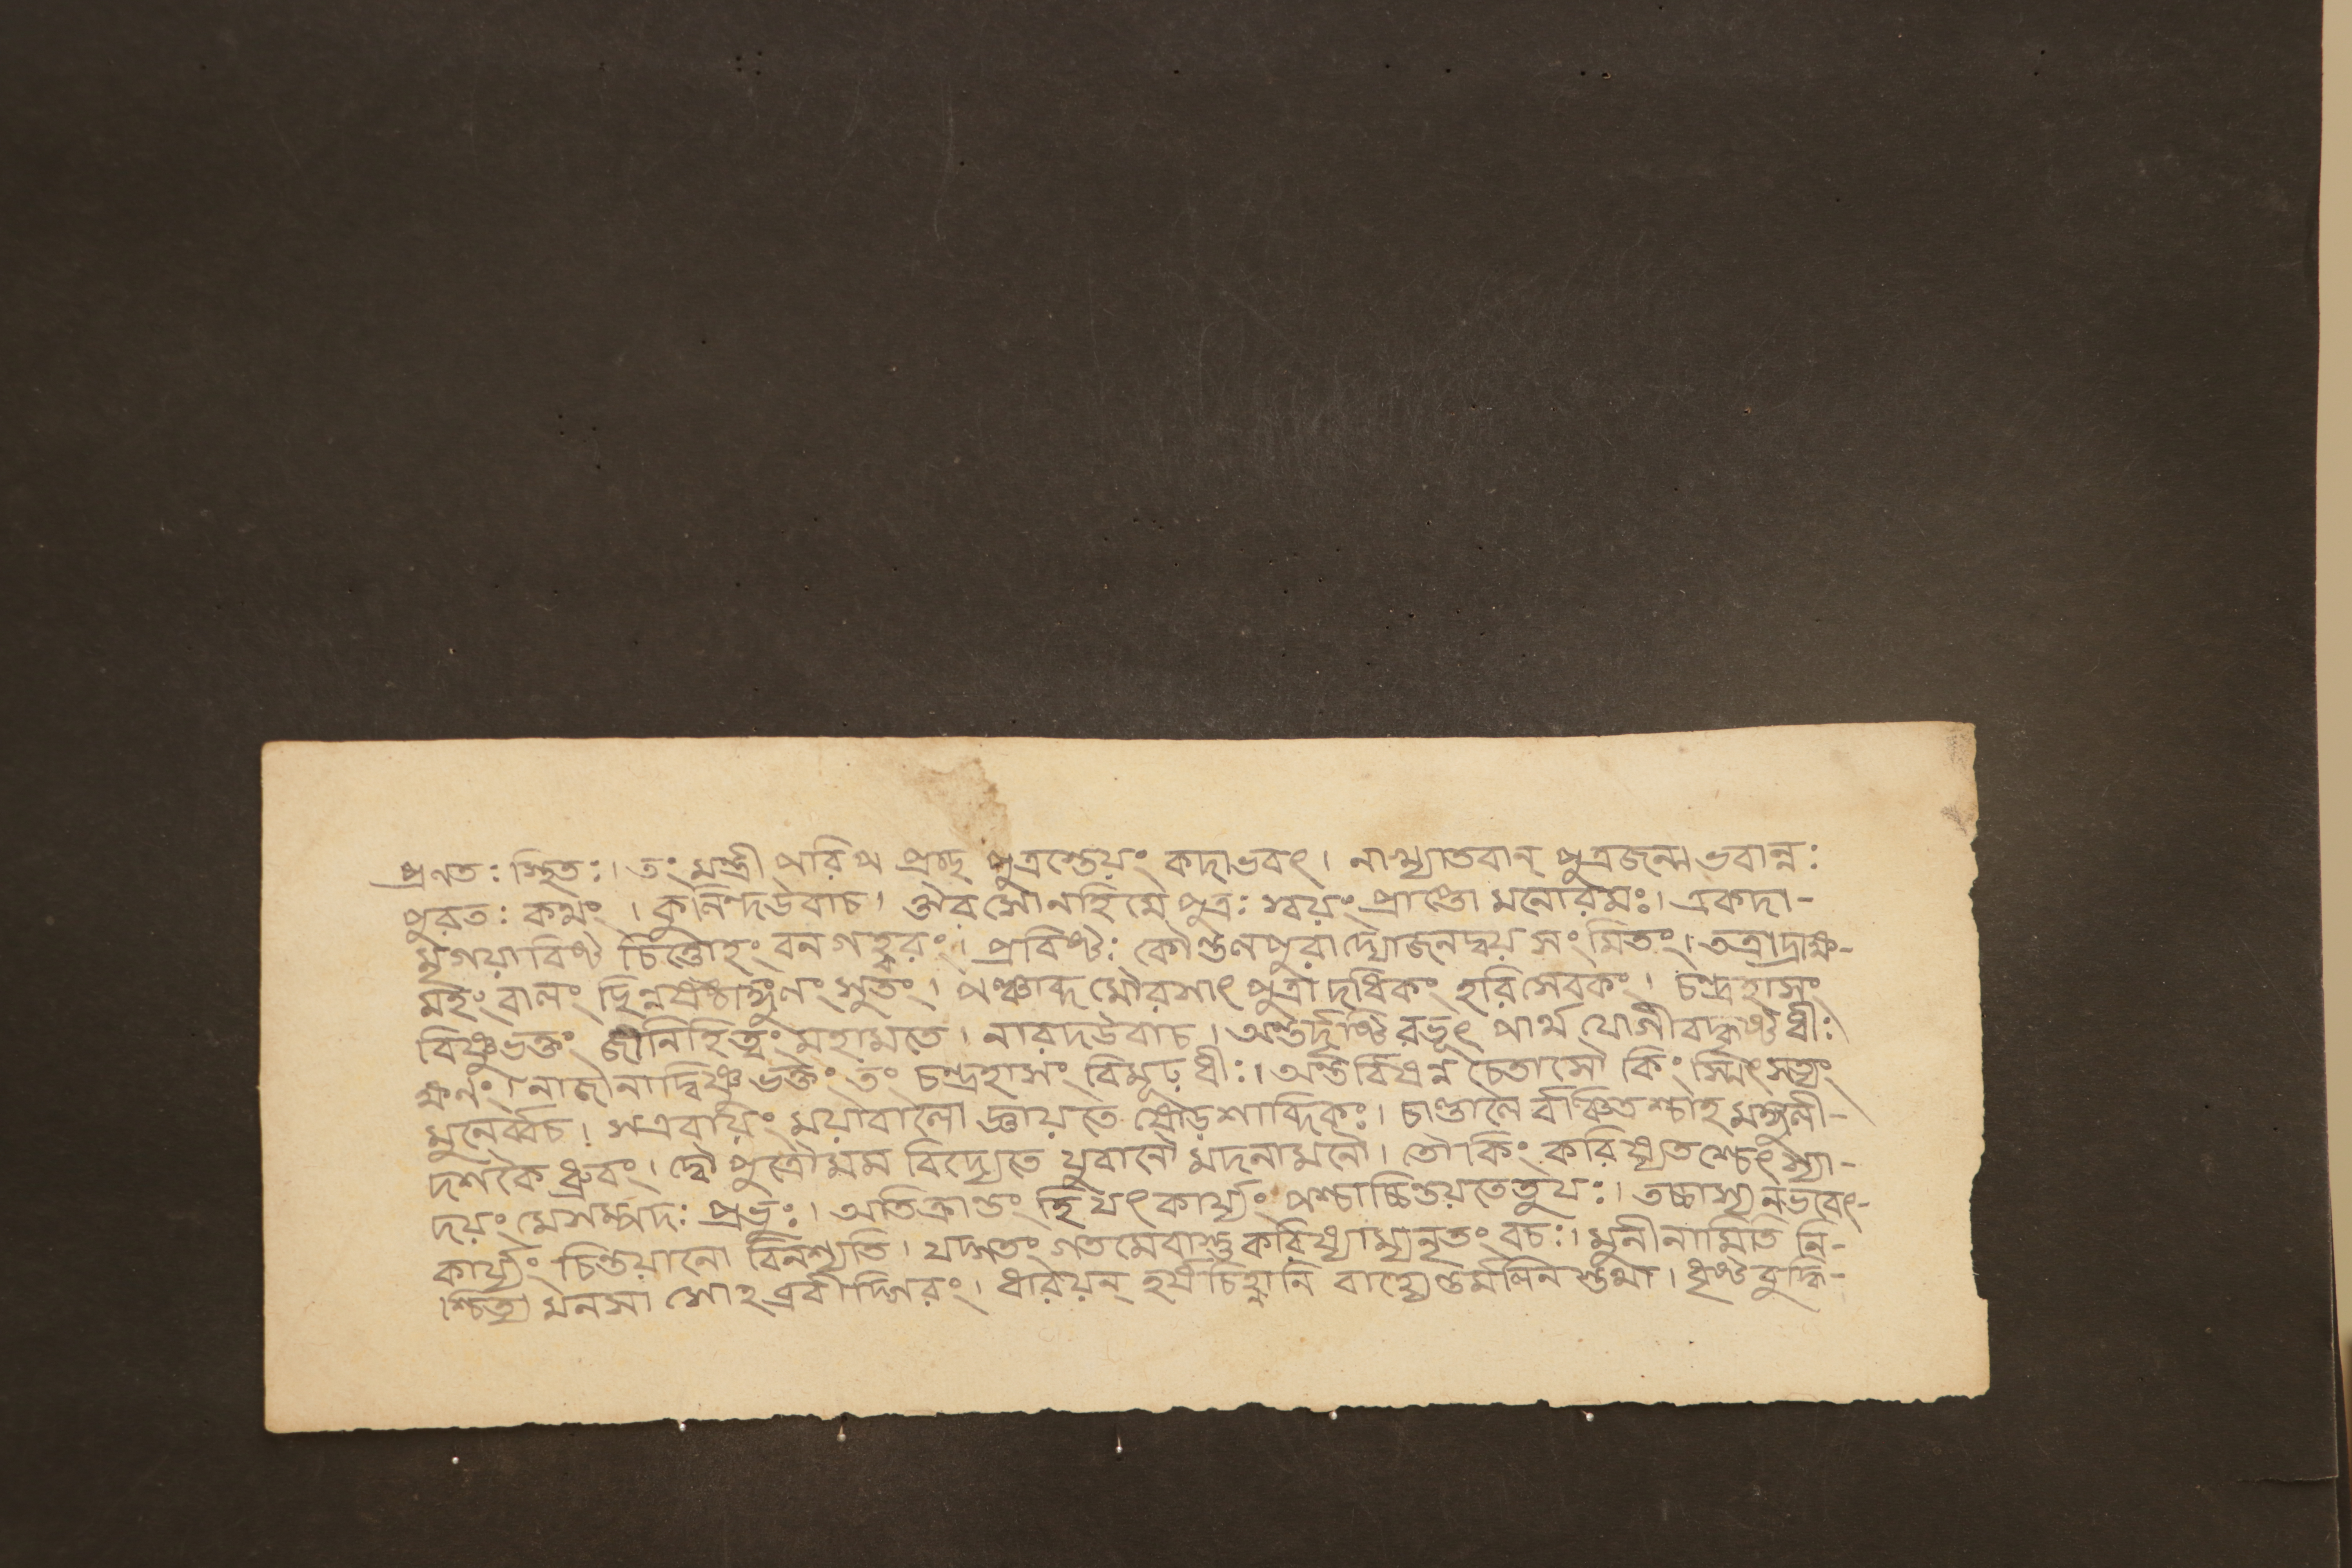 প্রণতঃ স্থিতঃ। তং মন্ত্রী পরিপপ্রচ্ছ পুত্রস্তেয়ং কদাভবৎ। নাখ্যাতবান্ পুত্রজন্ম ভবান্নঃ
পুরতঃ কথং। কুলিন্দউবাচ। ঔরসো নহি মে পুত্রঃ স্বয়ং প্রাপ্তো মনোরমঃ। একদা-
মৃগয়াবিষ্ট চিত্তোহং বনগহ্বরং। প্রবিষ্টঃ কৌণ্ডলপুরাদ্যোজনদ্বয় সংমিতং। তত্রাদ্রাক্ষ-
মহং বালং ছিন্নষষ্ঠাঙ্গুলং সুতং। পঞ্চাব্দ মৌরসাৎ পুত্রাদধিকং হরিসেবকং। চন্দ্রহাসং
বিষ্ণুভক্তং জানিহিত্বং মহামতে। নারদউবাচ। অন্তর্দৃষ্টিরভূৎ পার্থ যোগীবাকৃষ্ট ধীঃ
ক্ষণং। নাজানাদ্বিষ্ণুভক্তং তং চন্দ্রহাসং বিমূঢ়ধীঃ। অন্তর্বিষন্ন চেতাসৌ কিং স্মিৎসত্যং
মুনের্ব্বচ। সএবায়ং ময়াবালো জ্ঞায়তে ষোড়শাব্দিকঃ। চাণ্ডালৈ র্বঞ্চিতশ্চাহ মঙ্গুলী-
দর্শকৈ র্ধ্রুবং। দ্বৌ পুত্রৌ মম বিদ্যেতে যুবানৌ মদনামলৌ। তৌ কিং করিষ্যতশ্চেৎস্যা-
দয়ং মেসম্পদঃ প্রভুঃ। অতিক্রান্তং হি যৎকার্য্যং পশ্চাচ্চিন্তয়তেতু যঃ। তচ্চাস্য নভবেৎ-
কার্য্যং চিন্তয়ানো বিনশ্যতি। যদ্গতং গতমেবাস্তু করিষ্যাম্যনৃতং বচঃ। মুনীনামিতি নি-
শ্চিত্য মনসা সোহব্রবীদ্গিরং। ধারয়ন্ হর্ষচিহ্নানি বাহ্যেণ্তর্মলিন স্তথা। ধৃষ্টবুদ্ধি-